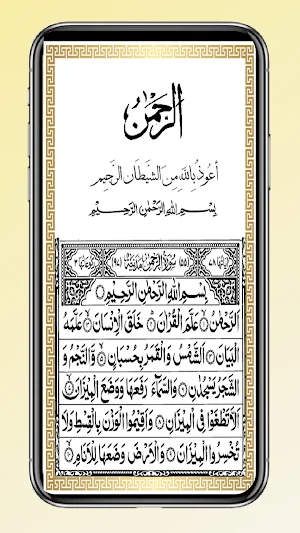 الرحمن
أعوذ بالله من الشيطان الرجيم
بسم الله الرحمن الرحيم
(٥٥) سورة الرحمن مدنية (٩٧)
بسم الله الرحمن الرحيم
الرحمن ۝١ علم القران ۝٢ خلق الانسان ۝٣ علمه
البيان ۝٤ الشمس والقمر بحسبان ۝٥ والنجم و
الشجر يسجدان ۝٦ والسماء رفعها ووضع الميزان ۝٧
الا تطغوا في الميزان ۝٨ واقيموا الوزن بالقسط ولا
تخسروا الميزان ۝٩ والارض وضعها للانام ۝١٠